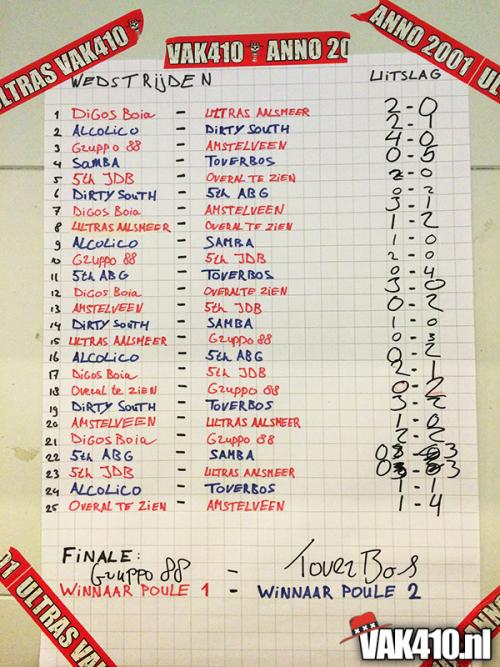 ULTRAS VAK410
VAK410 ANNO 20
ANNO 2001 UL
WEDSTRIJDEN UITSLAG
1 DiGOS BOiA - ULTRAS AALSMEER 2 - 0
2 ALCOLICO - DIRTY SOUTH 2 - 1
3 GRUPPO 88 - AMSTELVEEN 4 - 0
4 SAMBA - TOVERBOS 0 - 5
5 5th JDB - OVERAL TE ZIEN 2 - 0
6 DIRTY SOUTH - 5th ABG 0 - 2
7 DiGOS BOiA - AMSTELVEEN 3 - 1
8 ULTRAS AALSMEER - OVERAL TE ZIEN 1 - 2
9 ALCOLICO - SAMBA 1 - 0
10 GRUPPO 88 - 5th JDB 2 - 0
11 5th ABG - TOVERBOS 0 - 4
12 DiGOS BOiA - OVERAL TE ZIEN 3 - 0
13 AMSTELVEEN - 5th JDB 0 - 2
14 DIRTY SOUTH - SAMBA 1 - 0
15 ULTRAS AALSMEER - GRUPPO 88 0 - 3
16 ALCOLICO - 5th ABG 0 - 2
17 DiGOS BOiA - 5th JDB 2 - 1
18 OVERAL TE ZIEN - GRUPPO 88 0 - 2
19 DIRTY SOUTH - TOVERBOS 3 - 2
20 AMSTELVEEN - ULTRAS AALSMEER 1 - 0
21 DiGOS BOiA - GRUPPO 88 2 - 2
22 5th ABG - SAMBA 0 - 3
23 5th JDB - ULTRAS AALSMEER 0 - 3
24 ALCOLICO - TOVERBOS 1 - 1
25 OVERAL TE ZIEN - AMSTELVEEN 1 - 4
FINALE:
Gruppo 88 - Tover Bos
WINNAAR POULE 1 - WINNAAR POULE 2
01 ULTRAS VAK
ANNO
VAK410.nl